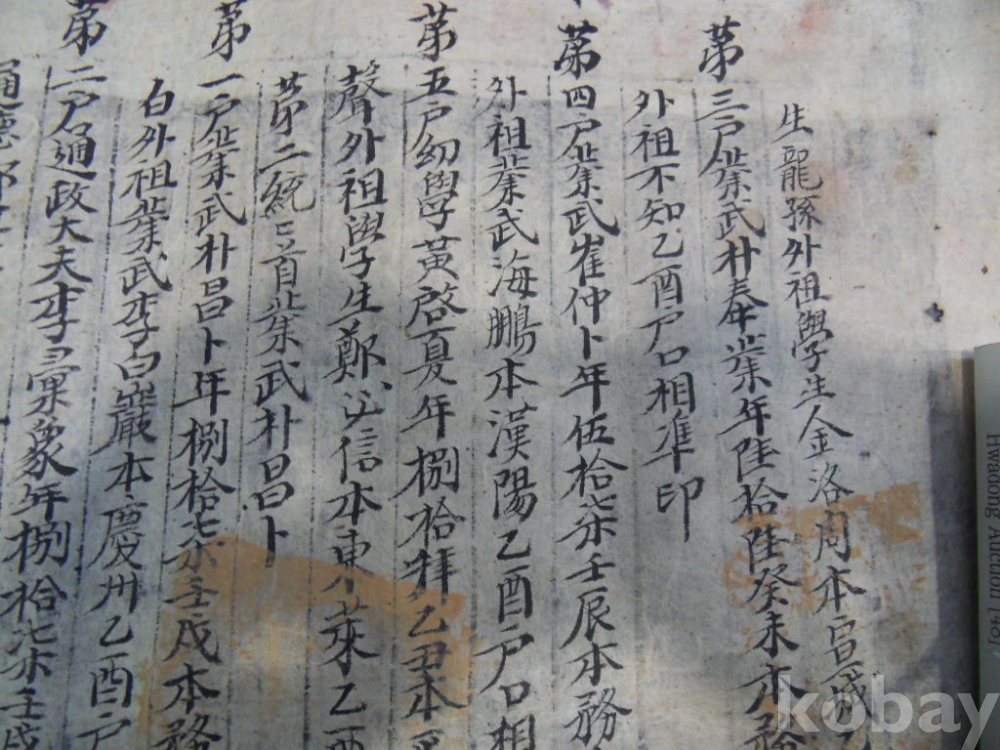 生龍孫外祖學生金洛周本宣城乙
第三戶業武朴春業年陸拾陸癸未本務
外祖不知乙酉戶口相準印
第四戶業武崔仲卜年伍拾柒壬辰本務
外祖業武海鵬本漢陽乙酉戶口相
第五戶幼學黃啓夏年捌拾肆乙丑本
聲外祖學生鄭必信本東萊乙酉
第二統統首業武朴昌卜
第一戶業武朴昌卜年捌拾柒壬戌本務
白外祖業武李白巖本慶州乙酉戶
第二戶通政大夫李象年捌拾柒壬戌
通德郎
Hwadong Auction
kobay